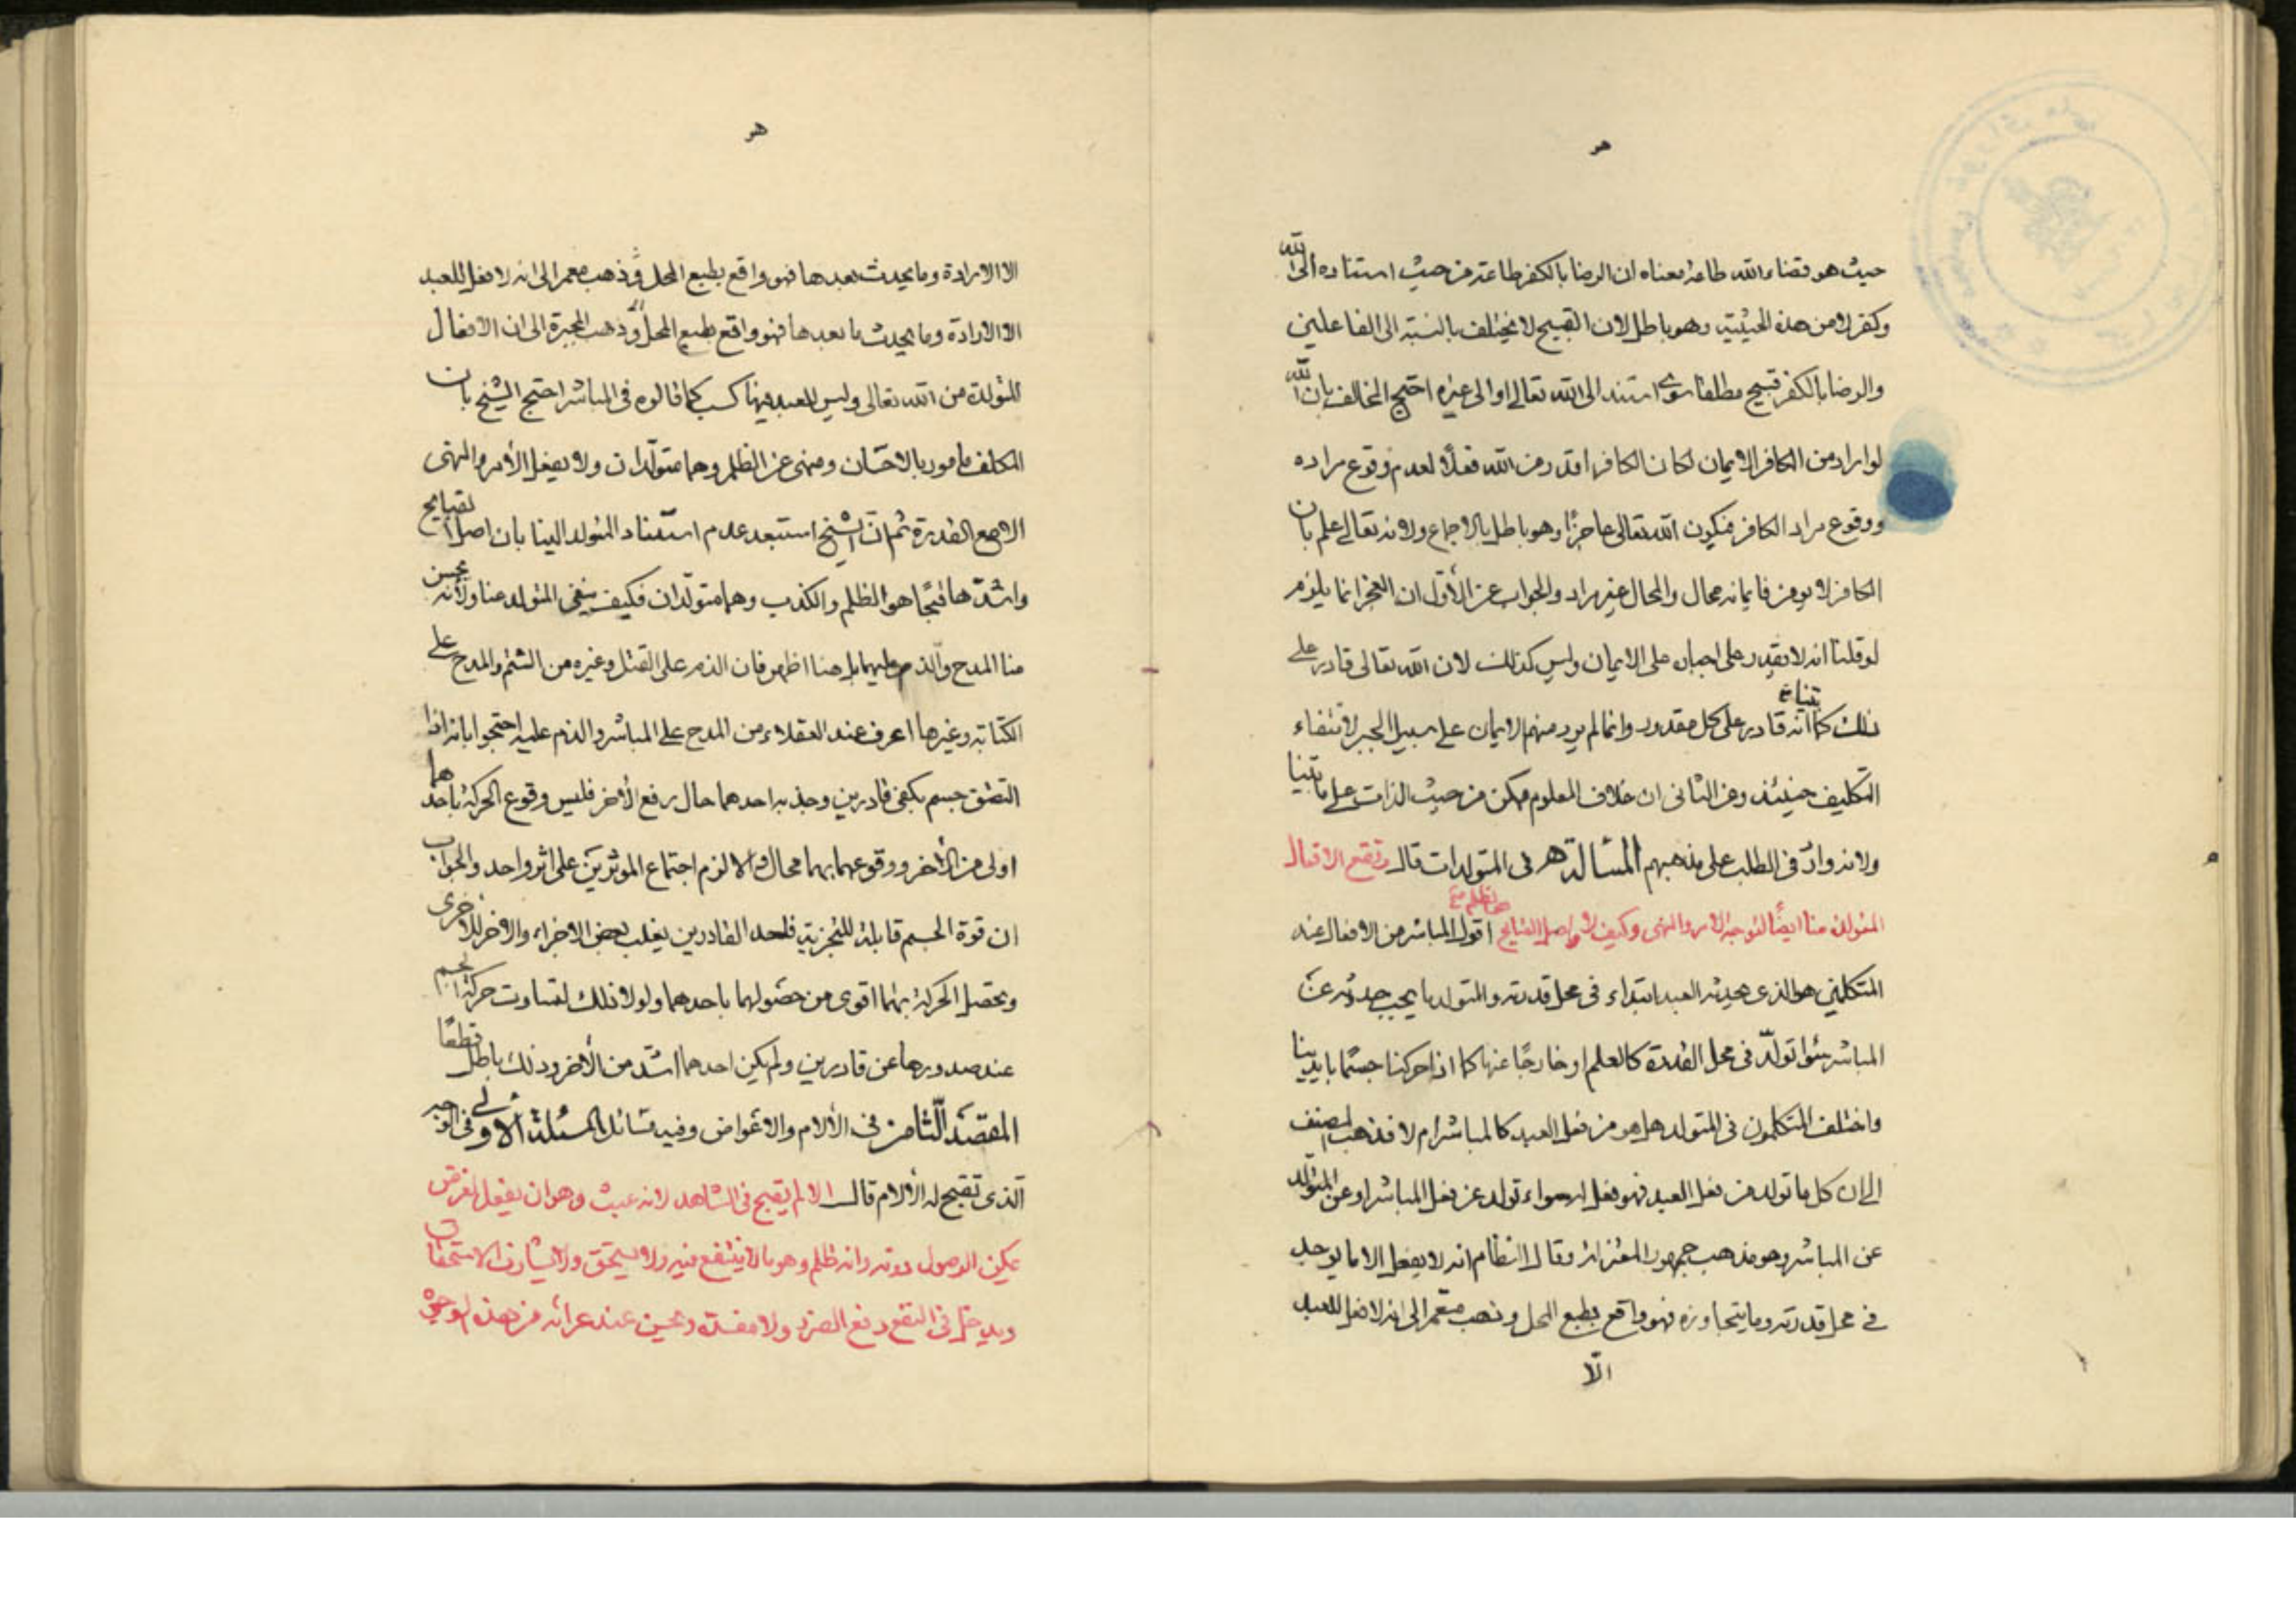 حيث هو قضاء الله طاعة معناه ان الرضا بالكفر طاعة من حيث استناده الى الله
وكفر لا من هذه الحيثية وهو باطل لان القبيح لا يختلف بالنسبة الى الفاعلين
والرضا بالكفر قبيح مطلقا سواء استند الى الله تعالى او الى غيره احتج المخالف بان الله
لو اراد من الكافر الايمان لكان الكافر اقدر من الله فعلًا لعدم وقوع مراده
ووقوع مراد الكافر فيكون الله تعالى عاجزًا وهو باطل بالاجماع ولانه تعالى علم بان
الكافر لا يومن فايمانه محال والمحال غير مراد والجواب عن الأوّل ان العجز انما يلزم
لو قلنا انه لا يقدر على اجباره على الايمان وليس كذلك لان الله تعالى قادر على
ذلك كما بينا انه قادر على كل مقدور وانما لم يرد منهم الايمان على سبيل الجبر لانتفاء
التكليف حينئذ وعن الثانى ان خلاف المعلوم ممكن من حيث الذات على ما بيّنا
ولانه وارد فى الطلب على مذهبهم المسالة هـ فى المتولدات قال وتقع الافعال
المتولدة منا ايضًا لتوجه الامر والنهى وكيف لا واصل القبايح هما ظلم اقول المباشر من الافعال عند
المتكلمين هو الذى يحدثه العبد ابتداء فى محل قدرته والمتولد ما يجب حدوثه عن
المباشر سواء تولّد فى محل القدرة كالعلم او خارجًا عنها كما اذا حركنا جسمًا بايدينا
واختلف المتكلمون فى المتولد هل هو من فعل العبد كالمباشر ام لا فذهب المصنف
الى ان كل ما تولد من فعل العبد فهو فعل له سواء تولد عن فعل المباشر او عن المتولد
عن المباشر وهو مذهب جمهور المعتزلة وقال النظام انه لا يفعل الا ما يوجد
فى محل قدرته وما يتجاوزه فهو واقع بطبع المحل وذهب معمر الى انه لا فعل للعبد
الّا
الا الارادة وما يحدث بعدها فهو واقع بطبع المحل وذهب معمر الى انه لا فعل للعبد
الا الارادة وما يحدث ما بعدها فهو واقع بطبع المحل وذهب المجبرة الى ان الافعال
المتولدة من الله تعالى وليس للعبد فيها كسب كما قالوه فى المباشر احتج الشيخ بان
المكلف مامور بالاحسان ومنهى عن الظلم وهما متولّدان ولا يفعل الأمر والنهى
الا مع القدرة ثم انّ الشيخ استبعد عدم استناد المتولد الينا بان اصل القبايح
واشدّها قبحًا هو الظلم والكذب وهما متولّدان فكيف ينفى المتولد عنا ولأنه يحسن
منا المدح والذم عليهما بل هنا اظهر فان الذم على القتل وغيره من الشتم والمدح على
الكتابة وغيرها اعرف عند العقلاء من المدح على المباشر والذم عليه احتجوا بانه اذا
التصق جسم بكفى قادرين وجذبه احدهما حال رفع الأخر فليس وقوع الحركة باحدهما
اولى من الأخر ووقوعهما بهما محال والا لزم اجتماع الموثرين على اثر واحد والجواب
ان قوة الجسم قابلة للتجزية فاحد القادرين يغلب بعض الاجزاء والاخر للاخرى
وتحصل الحركة بهما اقوى من حصولها باحدهما ولولا ذلك لتساوت حركة الجسم
عند صدورها عن قادرين ولم يكن احدهما اشد من الأخر وذلك باطل قطعًا
المقصد الثامن فى الألام والاعواض وفيه مسائل المسئلة الأولى فى الوجه
الّذى تقبح له الألام قال الالم يقبح فى الشاهد لانه عبث وهو ان يفعل لغرض
يمكن الوصول دونه وانه ظلم وهو ما لا ينتفع فيه ولا يستحق ولا يشارف الاستحقاق
ويدخل فى النفع دفع الضرر ولا مفسدة ويحسن عند عرائه من هذه الوجوه